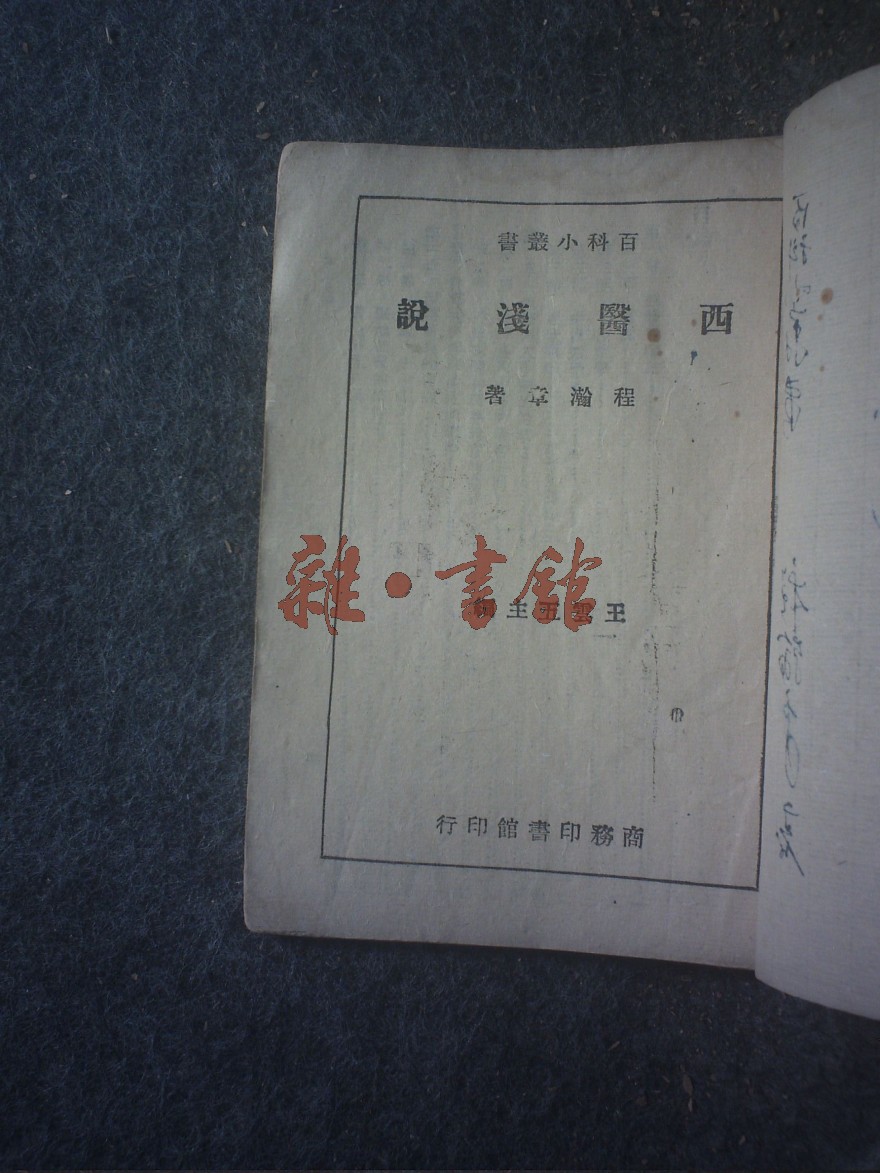 百科小叢書
西醫淺說
程瀚章著
雜·書館
王雲五主
商務印書館印行